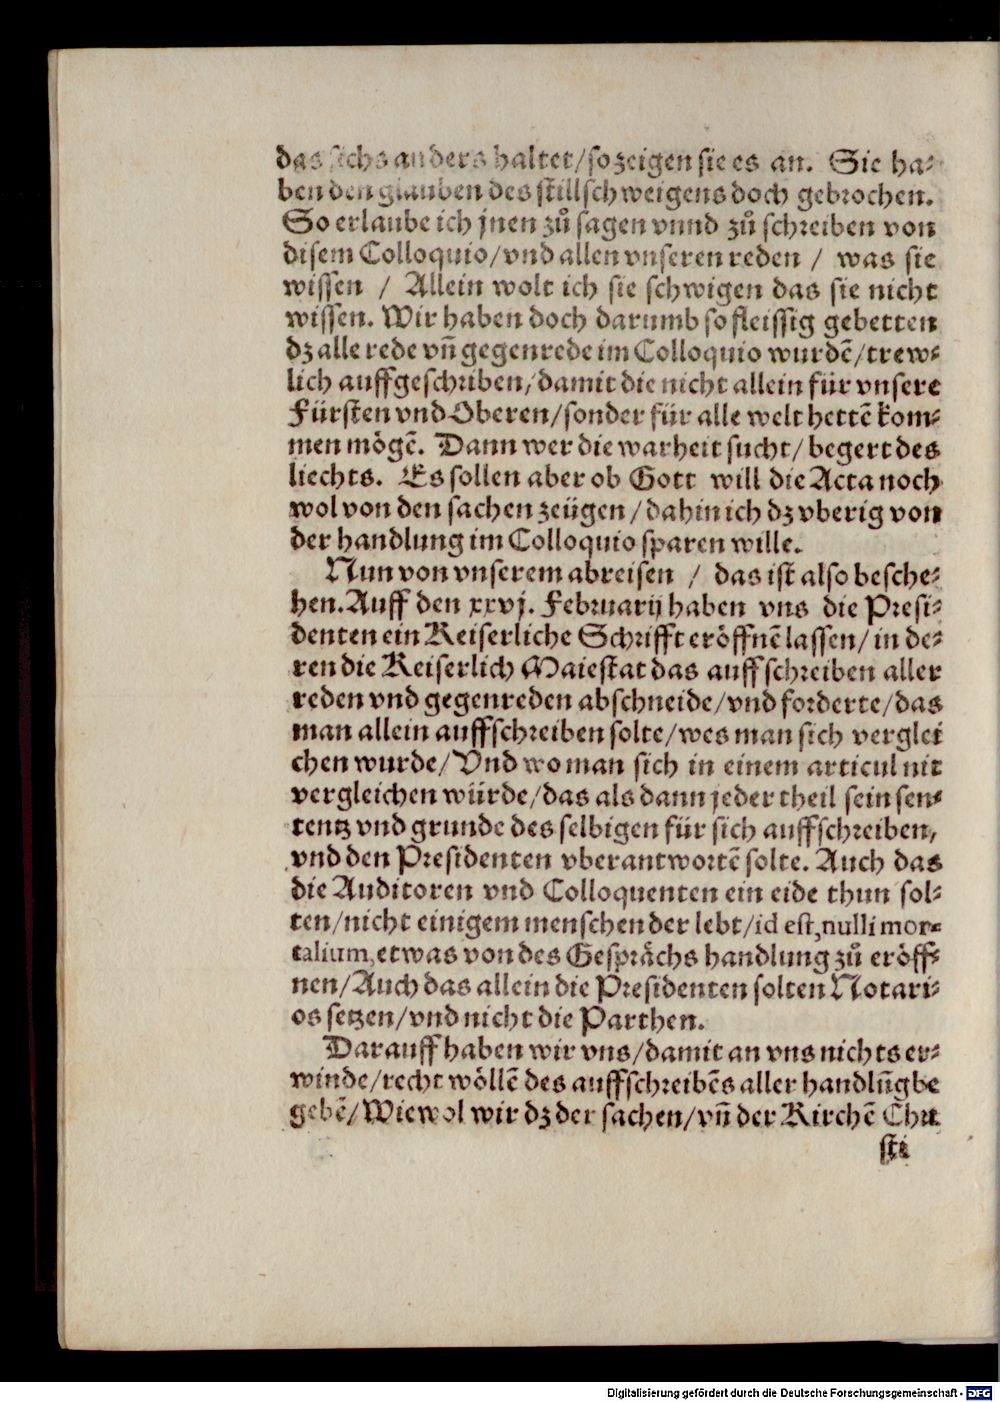 das sichs anders haltet/so zeigen sie es an. Sie ha⸗
ben den glauben des stillschweigens doch gebrochen.
So erlaube ich jnen zů sagen vnnd zů schreiben von
disem Colloquio/vnd allen vnseren reden / was sie
wissen / Allein wolt ich sie schwigen das sie nicht
wissen. Wir haben doch darumb so fleissig gebetten
dz alle rede vñ gegenrede im Colloquio wurdẽ/trew⸗
lich auffgeschriben/damit die nicht allein für vnsere
Fürsten vnd Oberen/sonder für alle welt hettẽ kom⸗
men mögẽ. Dann wer die warheit sucht/begert des
liechts. Es sollen aber ob Gott will die Acta noch
wol von den sachen zeügen/dahin ich dz vberig von
der handlung im Colloquio sparen wille.
Nun von vnserem abreisen / das ist also besche⸗
hen. Auff den xxvj. Februarij haben vns die Presi⸗
denten ein Keiserliche Schrifft eröffnẽ lassen/in de⸗
ren die Keiserlich Maiestat das auffschreiben aller
reden vnd gegenreden abschneide/vnd forderte/das
man allein auffschreiben solte/wes man sich verglei
chen wurde/Vnd wo man sich in einem articul nit
vergleichen würde/das als dann jeder theil sein sen⸗
tentz vnd grunde des selbigen für sich auffschreiben,
vnd den Presidenten vberantwortẽ solte. Auch das
die Auditoren vnd Colloquenten ein eide thun sol⸗
ten/nicht einigem menschen der lebt/id est, nulli mor⸗
talium, etwas von des Gesprächs handlung zů eröff⸗
nen/Auch das allein die Presidenten solten Notari⸗
os setzen/vnd nicht die Parthen.
Darauff haben wir vns/damit an vns nichts er⸗
winde/recht wöllẽ des auffschreibẽs aller handlũg be
gebẽ/Wiewol wir dz der sachen/vñ der Kirchẽ Chri
sti
Digitalisierung gefördert durch die Deutsche Forschungsgemeinschaft - DFG